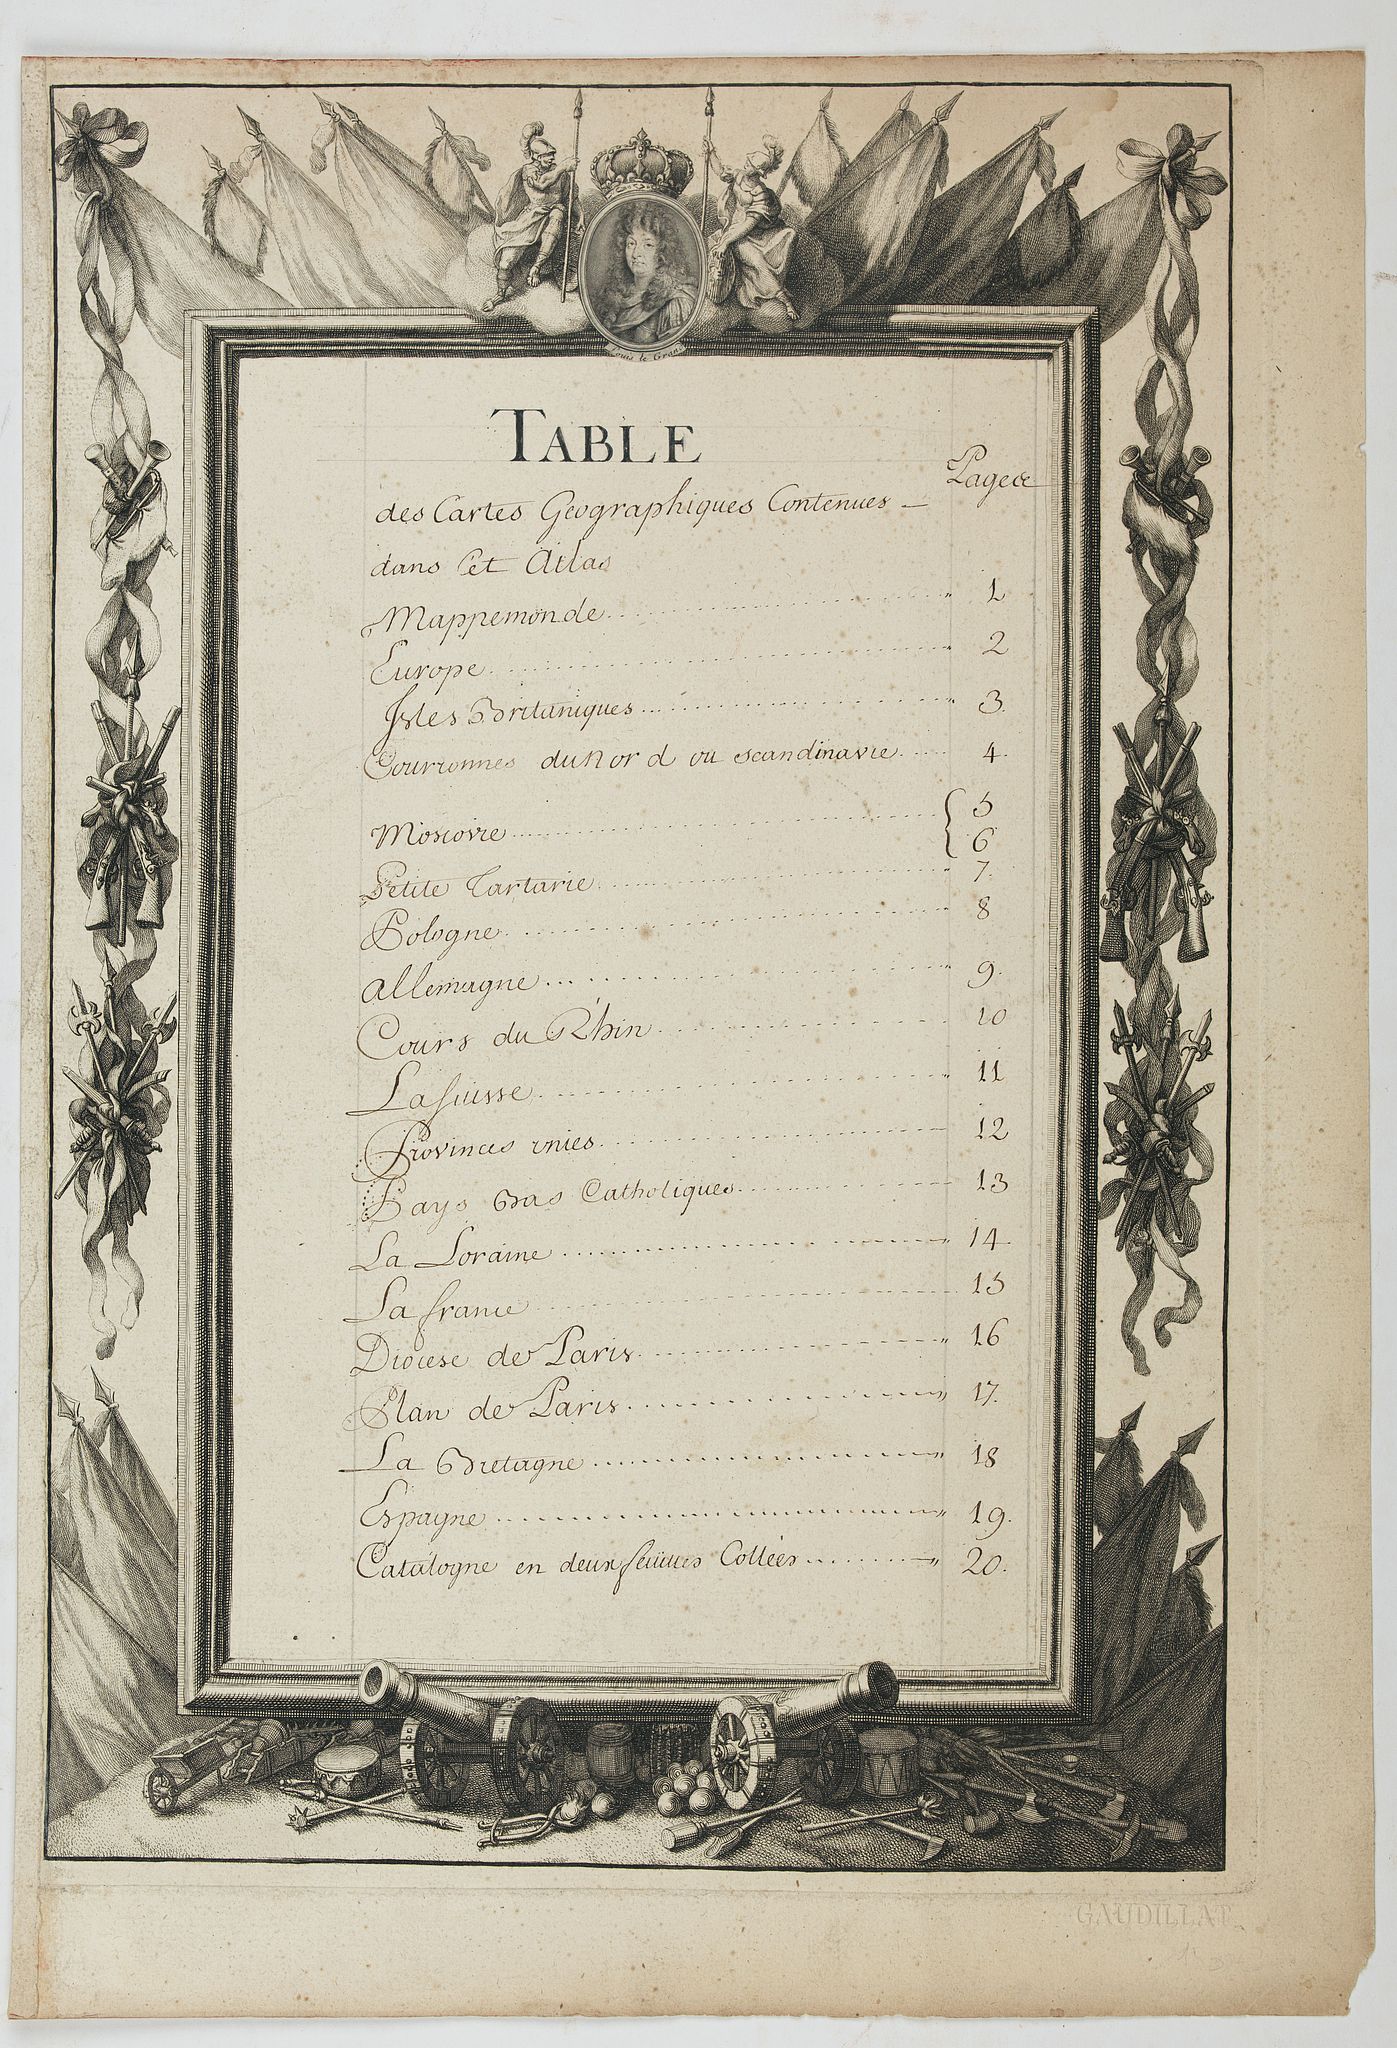 Louis le Grand
TABLE
Pages
des Cartes Geographiques Contenues
dans Cet Atlas
Mappemonde 1
Europe 2
Isles Britaniques 3
Couronnes du Nord ou Scandinavie 4
Moscovie { 5 6
Petite Tartarie 7.
Pologne 8
Allemagne 9.
Cours du Rhin 10
La Suisse 11
Provinces vnies 12
Pays Bas Catholiques 13
La Loraine 14
La france 15
Diocese de Paris 16
Plan de Paris 17.
La Bretagne 18
Espagne 19.
Catalogne en deux feüilles Collées 20.
GAUDILLAT